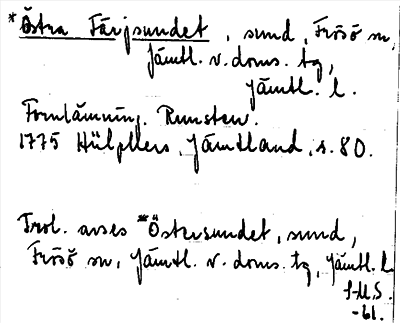 *Östra Färjsundet, sund, Frösö sn,
Jämtl. v. doms. tg,
Jämtl. l.
Fornlämning. Runsten.
1775 Hülphers, Jämtland, s. 80.
Trol. avses *Östersundet, sund,
Frösö sn, Jämtl. v. doms. tg, Jämtl. l.
-61.